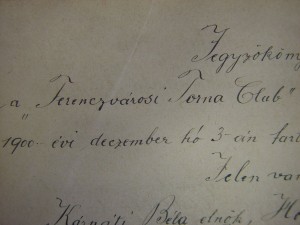 Jegyzőköny
a „Ferenczvárosi Torna Club"
1900-évi deczember hó 3-án tart
Jelen van
Béla elnök,